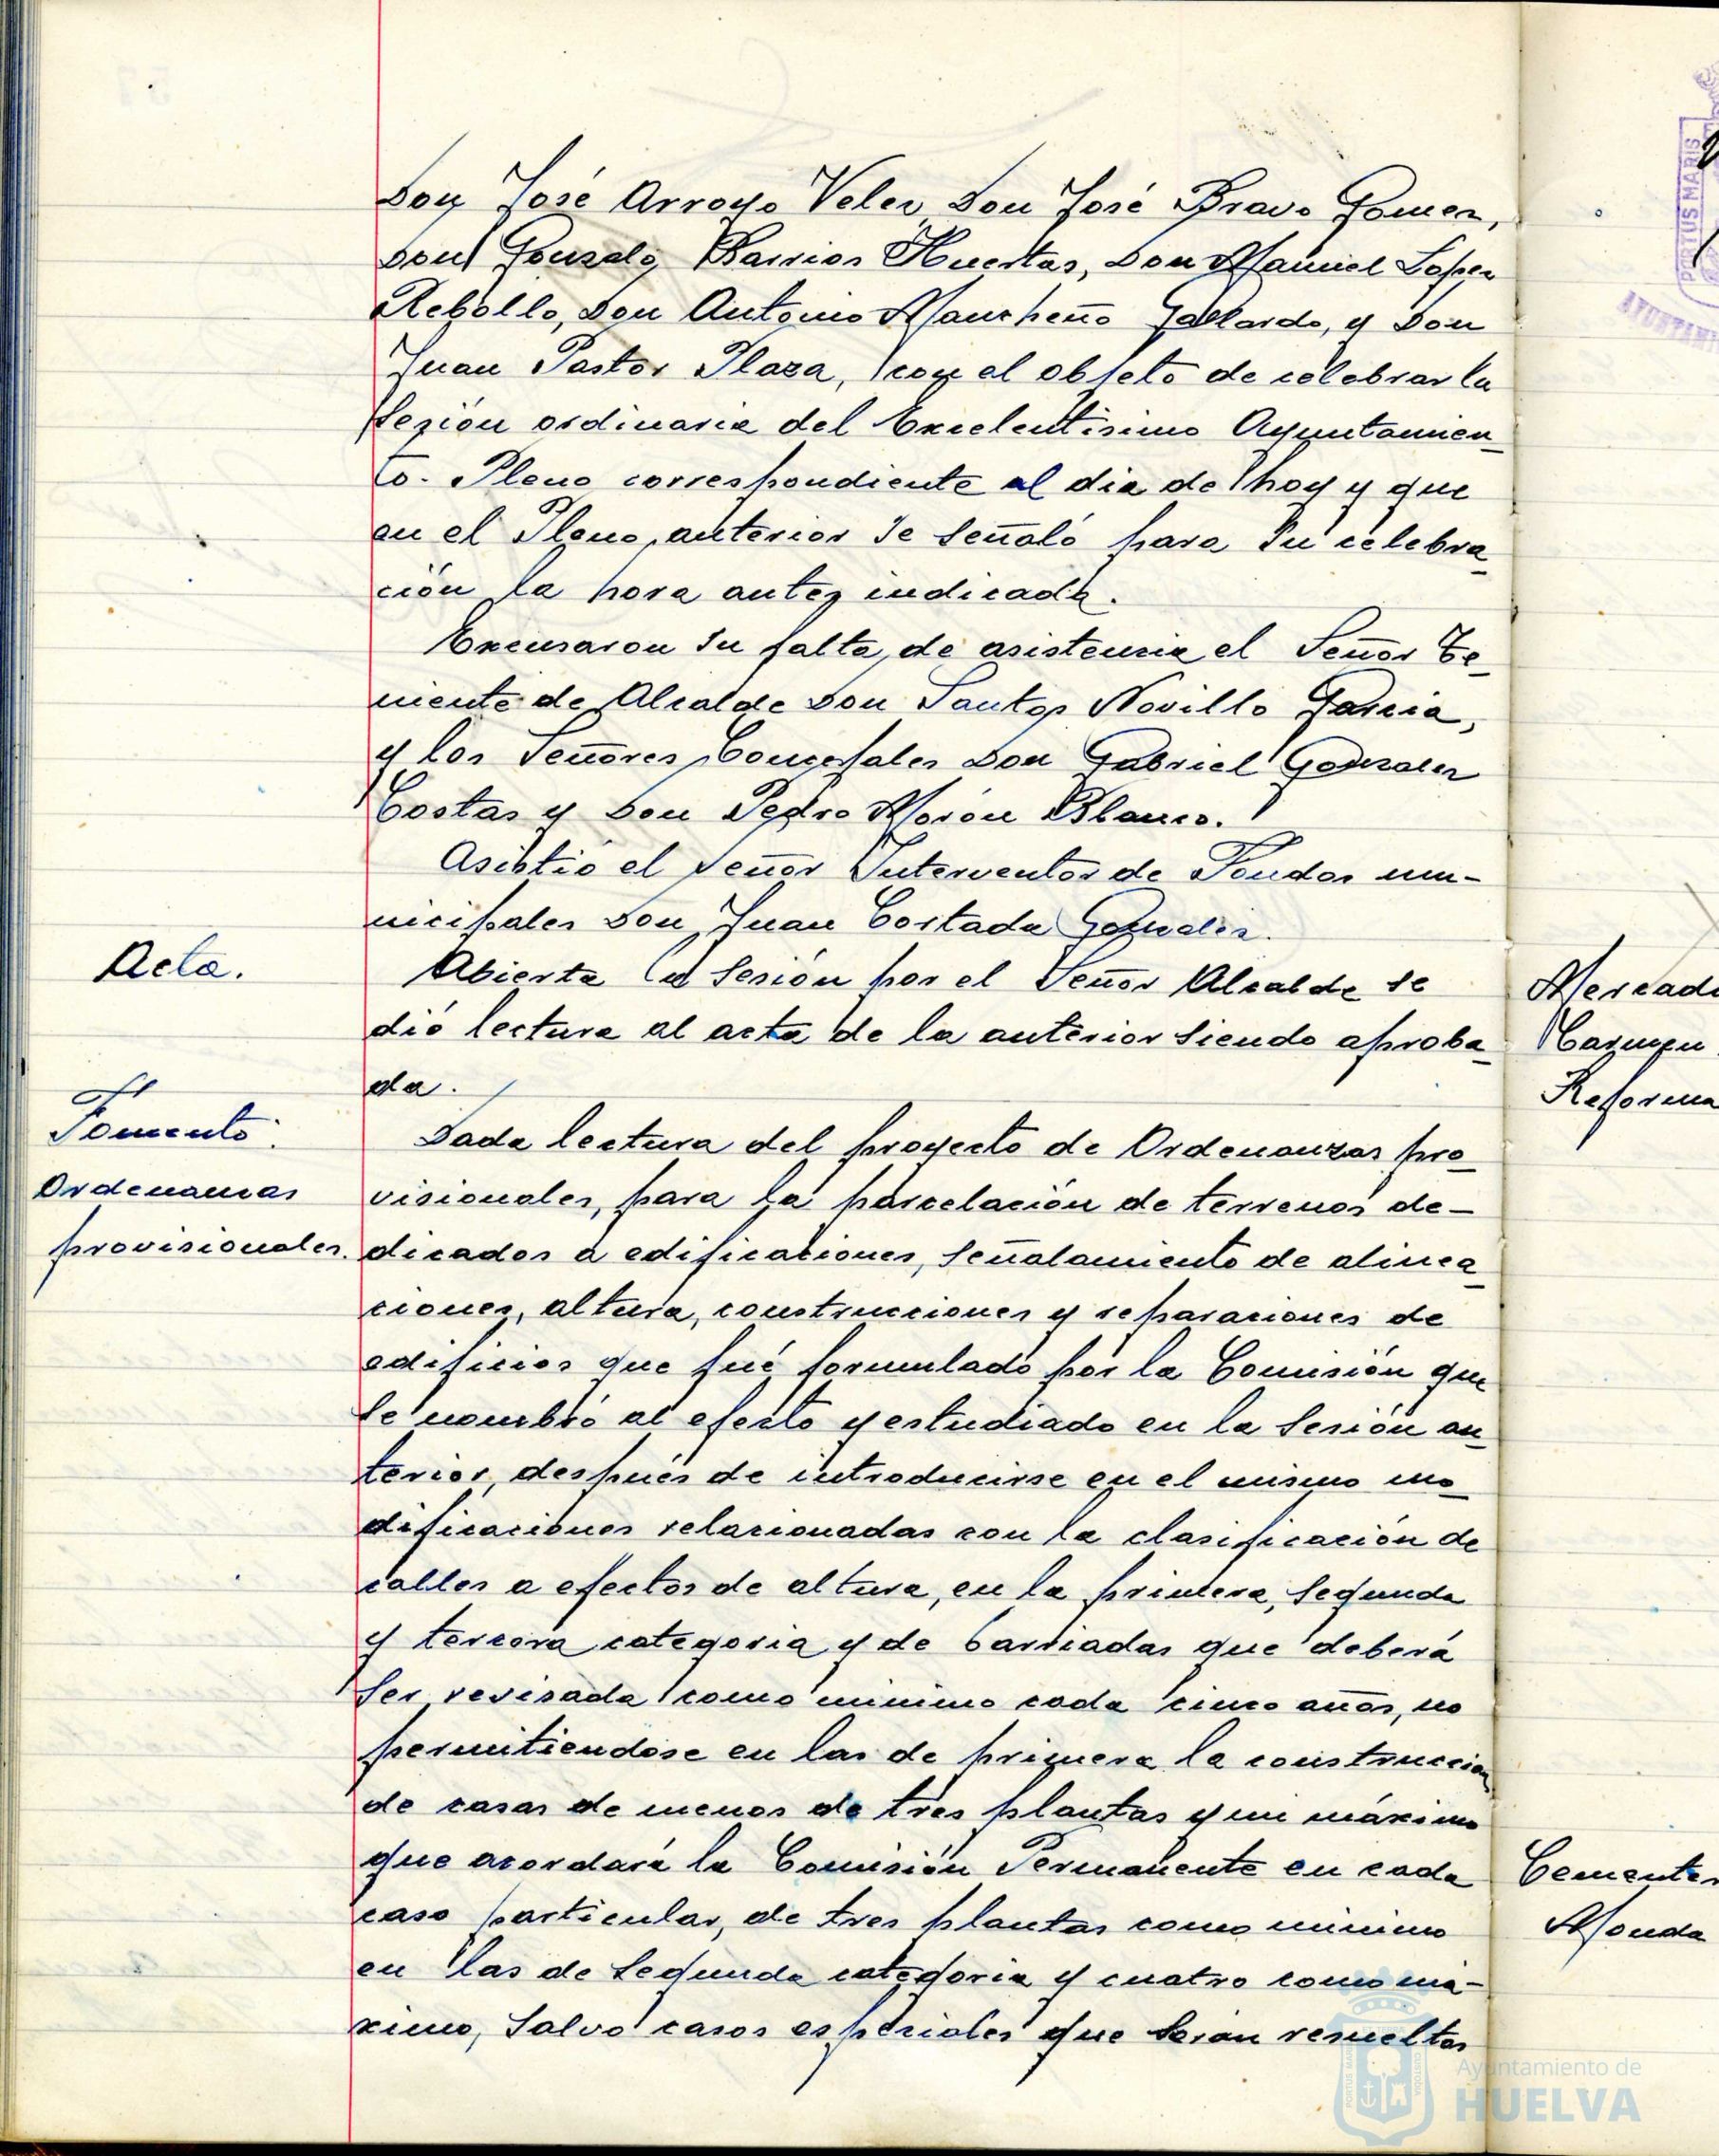 Don José Arroyo Velez Don José Bravo Gomez,
Don Gonzalo Barrios Huertas, Don Manuel Lopez
Rebollo, Don Antonio Mancheño Gallardo, y Don
Juan Pastor Plaza, con el objeto de celebrar la
sesion ordinaria del Excelentisimo Ayuntamien_
to. Pleno correspondiente al dia de hoy y que
en el Pleno anterior se señaló para su celebra_
ción la hora antes indicada.
Excusaron su falta de asistencia el Señor Te_
niente de Alcalde Don Santos Novillo Garcia,
y los Señores Concejales Don Gabriel Gonzalez
Costas y Don Pedro Morón Blanco.
Asistió el Señor Interventor de Fondos mu-
nicipales Don Juan Cortada
Acta.
Abierta la sesion por el Señor Alcalde se
dió lectura al acta de la anterior siendo aproba_
da.
Fomento.
Ordenanzas
provisionales.
Dada lectura del proyecto de Ordenanzas pro_
visionales, para la parcelación de terrenos de-
dicados a edificaciones, señalamiento de alinea_
ciones, altura, construcciones y reparaciones de
edificios que fué formulado por la Comisión que
se nombró al efecto y estudiado en la sesión an_
terior, después de introducirse en el mismo mo_
dificaciones relacionadas con la clasificación de
calles a efectos de altura, en la primera, segunda
y tercera categoria y de barriadas que deberá
ser revisada como minimo cada cinco años, no
permitiendose en las de primera la construccion
de casas de menos de tres plantas y un máximo
que acordará la Comisión Permanente en cada
caso particular, de tres plantas como minimo
en las de segunda categoria y cuatro como má-
ximo, salvo casos especiales que seran resueltos
PORTUS MARIS
Mercado
Carmen
Reforma
Cemente
Monda
Ayuntamiento de
HUELVA